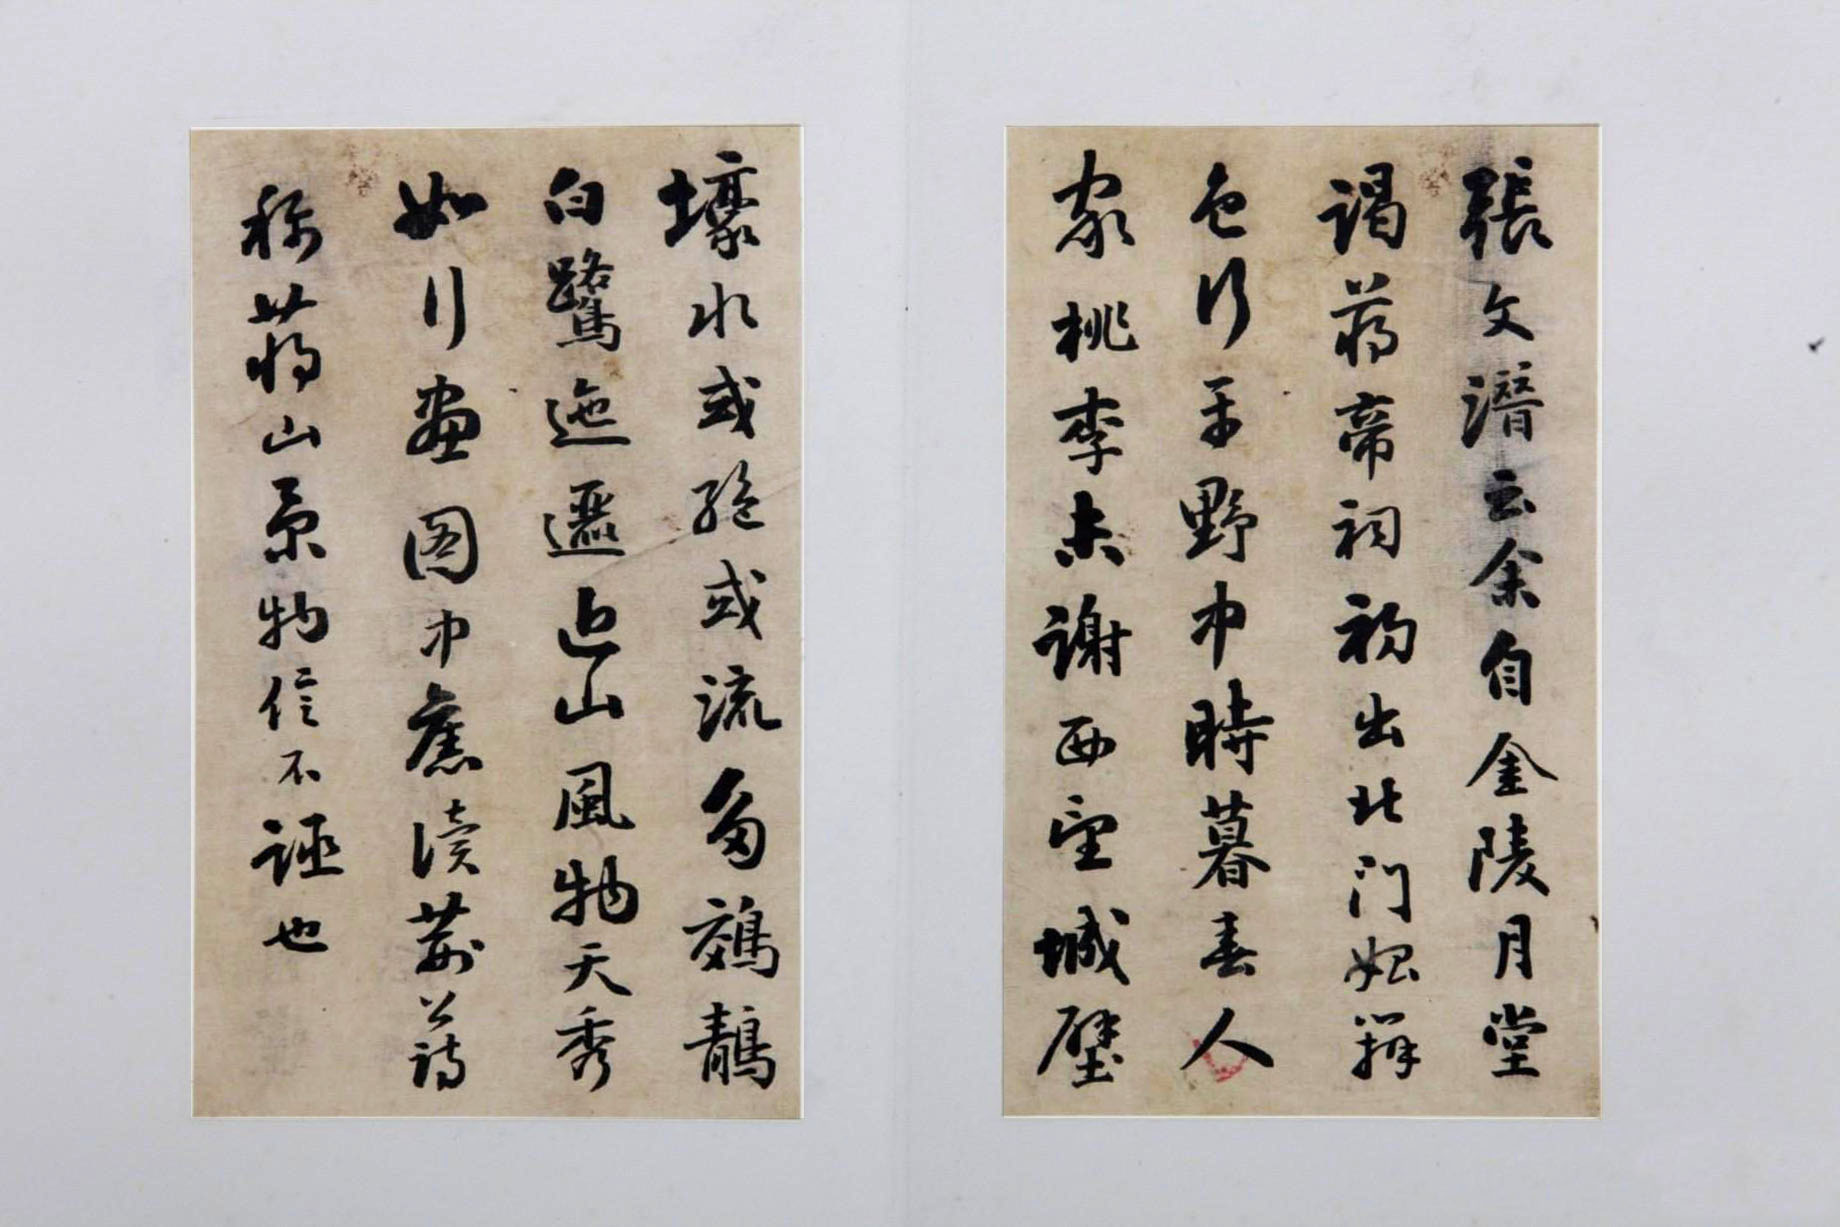 張文潛云余自金陵月堂
謁蔣帝祠初出北門始辨
色行平野中時暮春人
家桃李未謝西望城壁
壕水或絶或流多鵁鶄
白鷺迤邐近山風物夭秀
如行畫圖中舊讀荊公詩
稱蔣山景物信不誣也